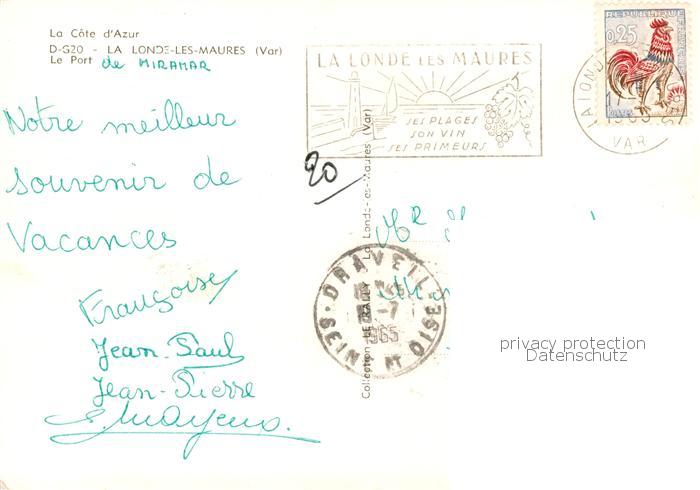 La Côte d'Azur
D-G20 - LA LONDE-LES-MAURES (Var)
Le Port de MIRAMAR
Notre meilleur
souvenir de
Vacances
Françoise
Jean-Paul
Jean-Pierre
20
LA LONDE LES MAURES
SES PLAGES
SON VIN
SES PRIMEURS
0,25
VAR
La Londe-les-Maures (Var)
Collection LE RALLY
DRAVEIL
1965
SEINE ET OISE
Mr
privacy protection
Datenschutz